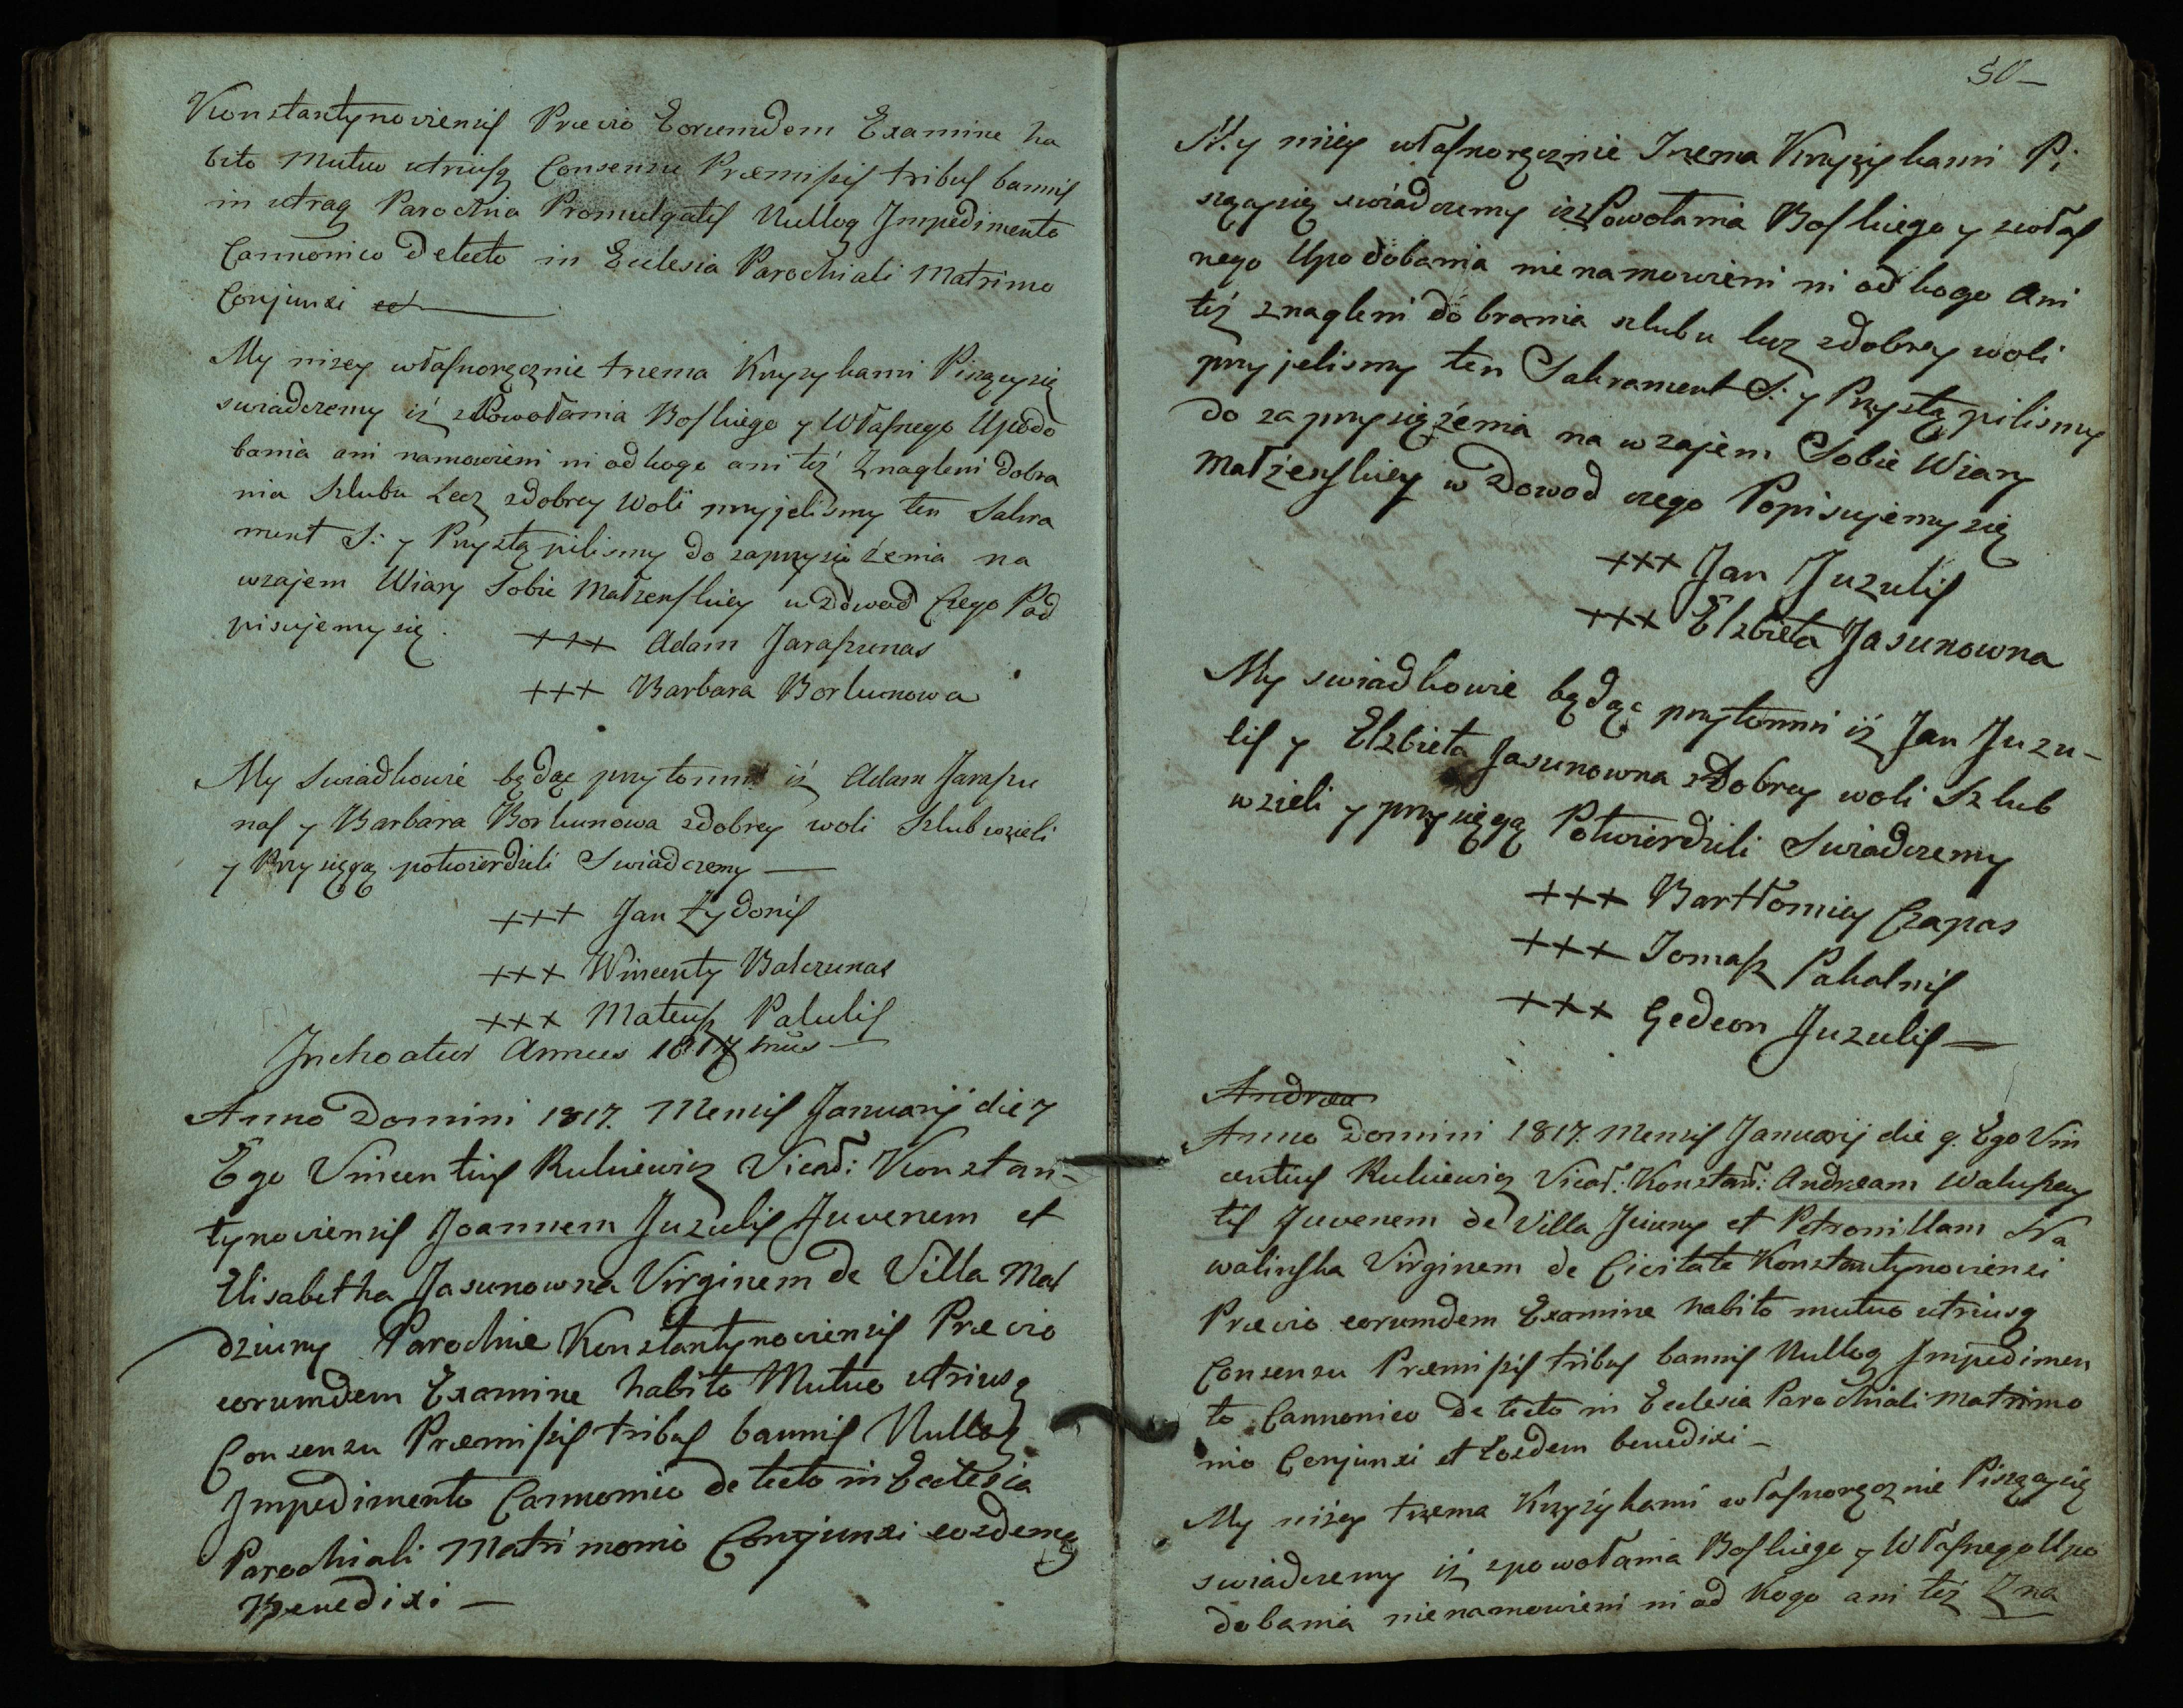 Konstantynoviensis Prævio Eorumdem Examine ha
bito Mutuo utriusq Consensu Præmissis tribus bannis
in utraq Parochia Promulgatis Nulloq Impedimento
Cannonico Detecto in Ecclesia Parochiali Matrimo
Conjunxi et
My nizey własnoręcznie trzema Krzyzykami Piszącysię
swiadczemy iż z Powołania Boskiego y Własnego Upodo
bania ani namowieni ni odkogo ani też Znagleni dobra
nia Szlubu Lecz zdobrey Woli przyjelismy ten Sakra
ment S: y Przystąpilismy do zaprzysiężenia na
wzajem Wiary Sobie Małzenskiey w Dowod Czego Pod
pisujemysię.
+++ Adam Jaraszunas
+++ Barbara Borkunowa
My Swiadkowie będąc przytomni iż Adam Jaraszu
nas y Barbara Borkunowa zdobrey woli Szlub wzieli
y Przysięgą potwierdzili Swiadczemy —
+++ Jan Żydonis
+++ Wincenty Balczunas
+++ Mateusz Palulis
Inchoatur Annus 1817 mus —
Anno Domini 1817. Mensis Januarij die 7
Ego Vincentius Rukiewicz Vicar: Konstan-
tynoviensis Joannem Juzulis Juvenem et
Elisabetha Jasunowna Virginem de Villa Mal
dziuny Parochiæ Konstantynoviensis Prævio
eorumdem Examine habito Mutuo utriusq
Consensu Præmissis tribus bannis Nulloq
Impedimento Cannonico detecto in Ecclesia
Parochiali Matrimonio Conjunxi eosdemq
Benedixi —
50 —
My niżey własnoręcznie Trzema Krzyzykami Pi
szącysię swiadczemy iż z Powołania Boskiego y zwłas
nego Upodobania nienamowieni ni od kogo Ani
też znagleni do brania szlubu lecz zdobrey woli
przyjelismy ten Sakrament S: y Przystąpilismy
do zaprzysiężenia na wzajem Sobie Wiary
Małżenskiey w Dowod czego Popisujemysię
+++ Jan Juzulis
+++ Elzbieta Jasunowna
My swiadkowie będąc przytomni iż Jan Juzu-
lis y Elzbieta Jasunowna z Dobrey woli Szlub
wzieli y przysięgą Potwierdzili Swiadczemy
+++ Bartłomiey Czapas
+++ Tomasz Pakalnis
+++ Gedeon Juzulis —
Andrea
Anno Domini 1817. Mensis Januarij die 9. Ego Vin
centius Rukiewicz Vicar: Konstan: Andream Waluszay
tis Juvenem de Villa Jciuny et Petronillam Na
walinska Virginem de Civitate Konstantynoviensi
Prævio eorumdem Examine habito mutuo utriusq
Consensu Præmissis tribus bannis Nulloq Impedimen
to Cannonico detecto in Ecclesia Parochiali Matrimo
nio Conjunxi et Eosdem benedixi —
My niżey trzema Krzyżykami własnoręcznie Piszącysię
swiadczemy iż zpowołania Boskiego y Własnego Upo
dobania nienamowieni ni od Kogo ani też Zna